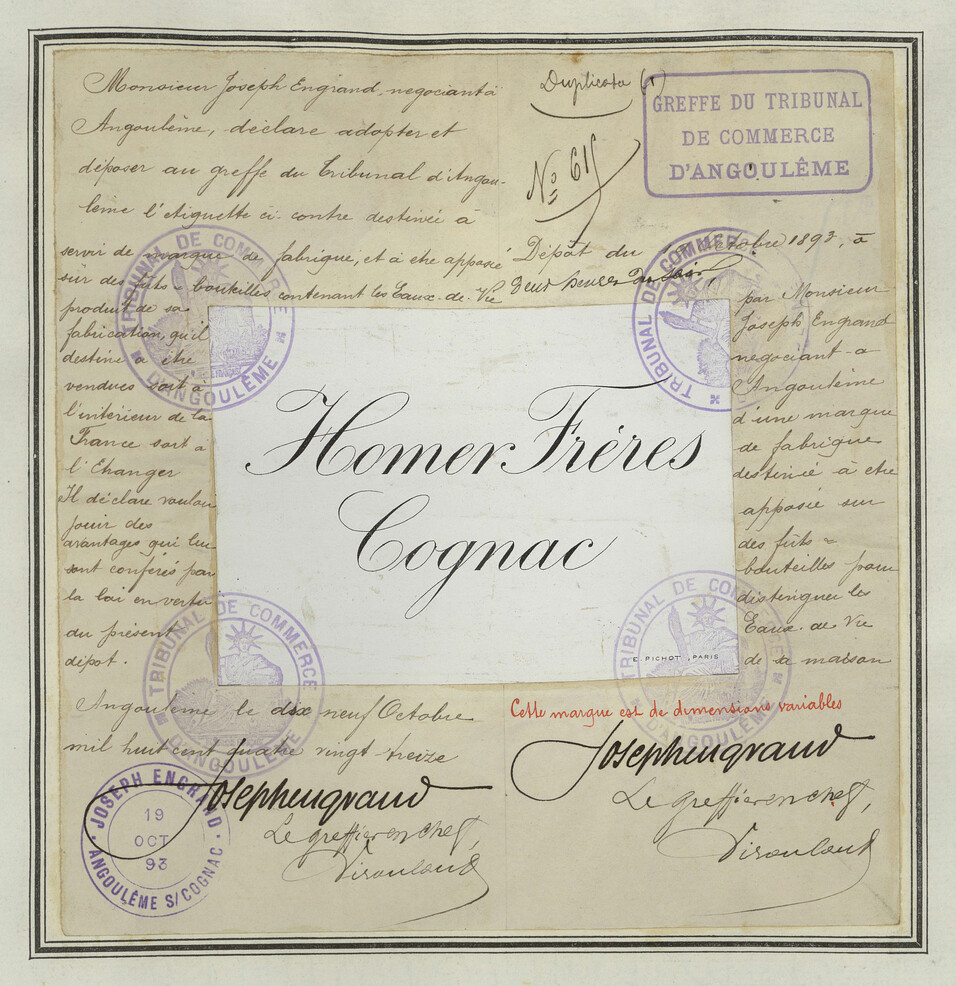 Monsieur Joseph Engrand negociant à
Angoulême, déclare adopter et
déposer au greffe du Tribunal d'Angou-
lême l'étiquette ci-contre destinée à
servir de marque de fabrique, et à etre apposée
sur des fûts - bouteilles contenant les Eaux-de-Vie
produit de sa
fabrication, qu'il
destine à être
vendues soit à
l'intérieur de la
France soit à
l'Etranger
Il déclare vouloir
jouir des
avantages qui lui
sont conférés par
la loi en vertu
du présent
dépot.
Angoulême le dix neuf Octobre
mil huit cent quatre vingt treize
Josephengrand
Le greffier en chef,
JOSEPH ENGRAND
19
OCT
93
ANGOULÊME S/COGNAC
Duplicata (1)
GREFFE DU TRIBUNAL
DE COMMERCE
D'ANGOULÊME
No 615
Dépôt du Octobre 1893, à
deux heures du soir
par Monsieur
Joseph Engrand
negociant à
Angoulême
d'une marque
de fabrique
destinée à etre
apposée sur
des fûts =
bouteilles pour
distinguer les
Eaux-de-Vie
de sa maison
Cette marque est de dimensions variables
Josephengrand
Le greffier en chef,
Homer Frères
Cognac
E. PICHOT, PARIS
TRIBUNAL DE COMMERCE
D'ANGOULÊME
TRIBUNAL DE COMMERCE
TRIBUNAL DE COMMERCE
D'ANGOULÊME
TRIBUNAL DE COMMERCE
D'ANGOULÊME